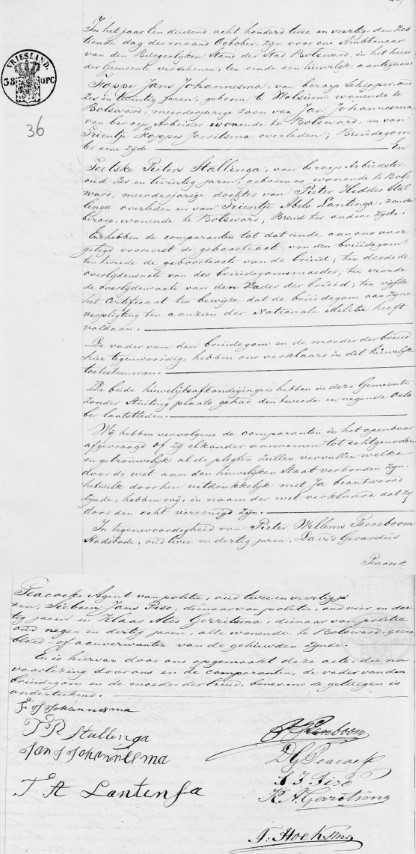 VRIESLAND.
58 OPC
36
In het jaar Een duizend acht honderd twee en veertig, den Zes
tiende dag der maand October, zijn voor ons Ambtenaar
van den Burgerlijken Stand der Stad Bolsward, in het huis
der Gemeente verschenen, ten einde een huwelijk aantegaan
Foppe Jans Johannesma, van beroep Schipper, oud
zes en twintig jaren, geboren te Wolsum, wonende te
Bolsward, meerderjarige zoon van Jan Johannesma
van beroep Arbeider wonende te Bolsward, en van
Trientje Foppes overleden, Bruidegom
ter eene zijde En
Teetske Pieters Stallinga, van beroep Arbeidster
oud zes en twintig jaren, geboren en wonende te Bols
ward, meerderjarige dochter van Pieter Hiddes Stal
linga overleden en van Trientje Abels Lantinga, zonder
beroep, wonende te Bolsward, Bruid ter andere zijde.
En hebben de comparanten tot dat einde aan ons over
gelegd vooreerst de geboorteacte van den bruidegom
ten tweede de geboorteacte van de bruid; ten derde de
overlijdensacte van des bruidegoms moeder; ten vierde
de overlijdensacte van den Vader der bruid; ten vijfde
het Certificaat ten bewijze dat de bruidegom aan zijne
verpligting ten aanzien der Nationale Militie heeft
voldaan.
De vader van den bruidegom en de moeder der bruid
hier tegenwoordig hebben ons verklaard in dit huwelijk
toetestemmen.
De beide huwelijksafkondigingen hebben in deze Gemeente
zonder stuiting plaats gehad den tweede en negende Octo
ber laatstleden.
Wij hebben vervolgens de comparanten in het openbaar
afgevraagd of zij elkander aannemen tot echtgenooten
en getrouwelijk al de pligten zullen vervullen welke
door de wet aan den huwelijken Staat verbonden zijn
hetwelk door hen uitdrukkelijk met Ja beantwoord
zijnde, hebben wij in naam der wet verklaard dat zij
door den echt vereenigd zijn.
In tegenwoordigheid van Pieter Willems
Stadsbode, oud twee en dertig jaren, David Gerardus
Peacock
Peacock Agent van politie, oud twee en veertig
jaren, Jans Fisc, dienaar van politie, oud vier en der
tig jaren en Klaas Ales Gerritsma, dienaar van politie
oud negen en dertig jaren, alle wonende te Bolsward, geen
bloed of aanverwanten van de gehuwden zijnde.
En is hiervan door ons opgemaakt deze acte, die na
voorlezing door ons en de comparanten, de vader van den
bruidegom en de moeder der bruid, benevens de getuigen is
onderteekend.
F J Johannesma
T P Stallinga
Jan J Johannesma
T A Lantenga
D G Peacock
K. A. Gerritsma